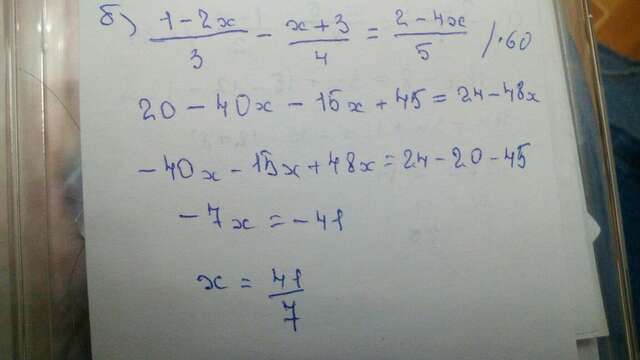 б) (1-2x)/3 - (x+3)/4 = (2-4x)/5 /·60
20 - 40x - 15x + 45 = 24 - 48x
-40x - 15x + 48x = 24 - 20 - 45
-7x = -41
x = 41/7